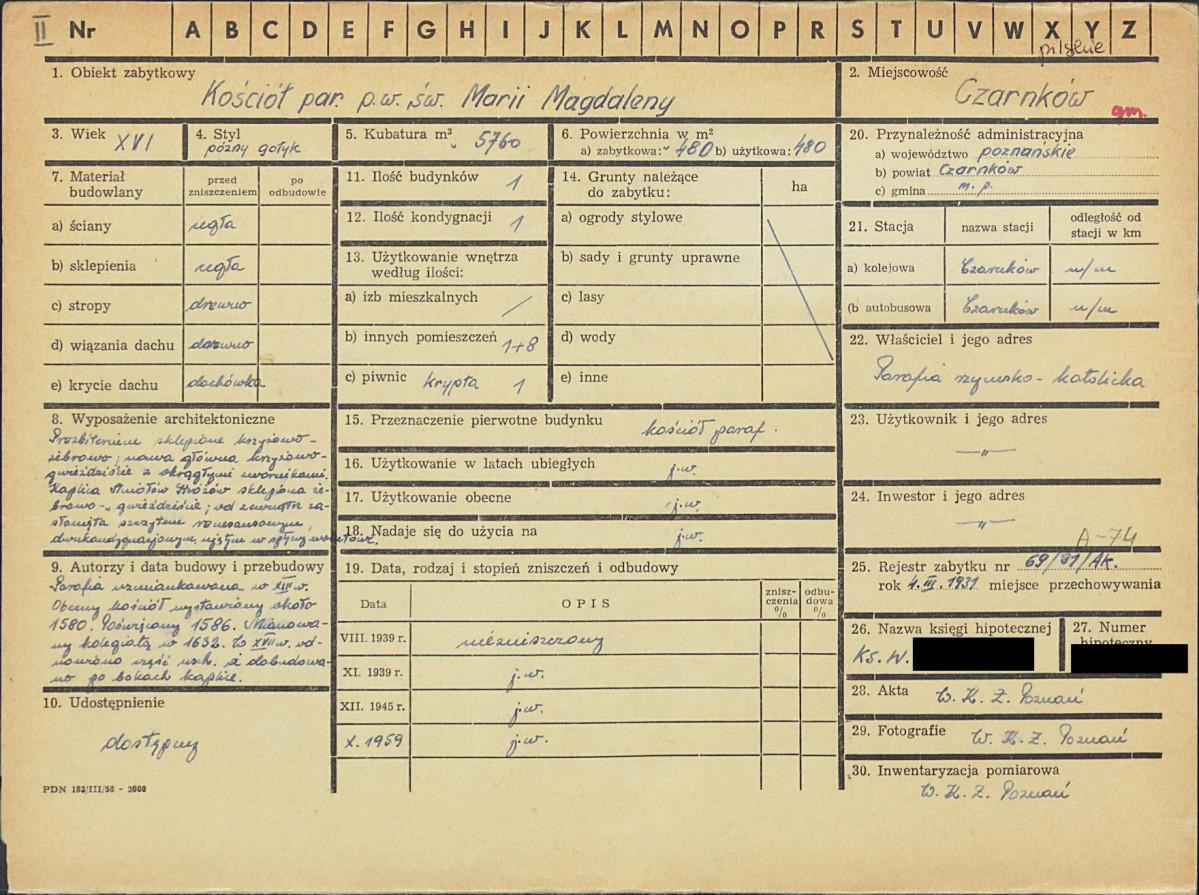 II Nr A B C D E F G H I J K L M N O P R S T U V W X Y Z
pilskie
1. Obiekt zabytkowy
Kościół par. p.w. św. Marii Magdaleny
2. Miejscowość
Czarnków
gm.
3. Wiek XVI
4. Styl
późny gotyk
5. Kubatura m³ 5760
6. Powierzchnia w m²
a) zabytkowa: 480 b) użytkowa: 480
7. Materiał budowlany
przed zniszczeniem
po odbudowie
a) ściany cegła
b) sklepienia cegła
c) stropy drewno
d) wiązania dachu drewno
e) krycie dachu dachówka
8. Wyposażenie architektoniczne
Prezbiterium sklepione krzyżowo-
żebrowo; nawa główna krzyżowo-
gwieździście z okrągłymi zwornikami.
Kaplica Aniołów Stróżów sklepiona że-
browo-gwieździście; od zewnątrz za-
słonięta szczytem renesansowym,
dwukondygnacjowym, ujętym w spływy wolutowe.
9. Autorzy i data budowy i przebudowy
Parafia wzmiankowana w XIII w.
Obecny kościół wystawiony około
1580. Poświęcony 1586. Mianowa-
ny kolegiatą w 1632. W XVII w. od-
nowiono część wsch. i dobudowa-
no po bokach kaplice.
10. Udostępnienie
dostępny
PDN 183/III/58 - 2000
11. Ilość budynków 1
12. Ilość kondygnacji 1
13. Użytkowanie wnętrza
według ilości:
a) izb mieszkalnych /
b) innych pomieszczeń 1+8
c) piwnic krypta 1
14. Grunty należące
do zabytku:
ha
a) ogrody stylowe
b) sady i grunty uprawne
c) lasy
d) wody
e) inne
15. Przeznaczenie pierwotne budynku kościół paraf.
16. Użytkowanie w latach ubiegłych j.w.
17. Użytkowanie obecne j.w.
18. Nadaje się do użycia na j.w.
19. Data, rodzaj i stopień zniszczeń i odbudowy
Data
OPIS
znisz-
czenia
%
odbu-
dowa
%
VIII. 1939 r. niezniszczony
XI. 1939 r. j.w.
XII. 1945 r. j.w.
X. 1959 j.w.
20. Przynależność administracyjna
a) województwo poznańskie
b) powiat Czarnków
c) gmina m. p.
21. Stacja
nazwa stacji
odległość od
stacji w km
a) kolejowa Czarnków n/m
(b autobusowa Czarnków n/m
22. Właściciel i jego adres
Parafia rzymsko-katolicka
23. Użytkownik i jego adres
—"—
24. Inwestor i jego adres
—"—
A-74
25. Rejestr zabytku nr 69/31/Ak.
rok 4.III.1931 miejsce przechowywania
26. Nazwa księgi hipotecznej
Ks. W.
27. Numer
hipoteczny
28. Akta W. K. Z. Poznań
29. Fotografie W. K. Z. Poznań
30. Inwentaryzacja pomiarowa
W. K. Z. Poznań